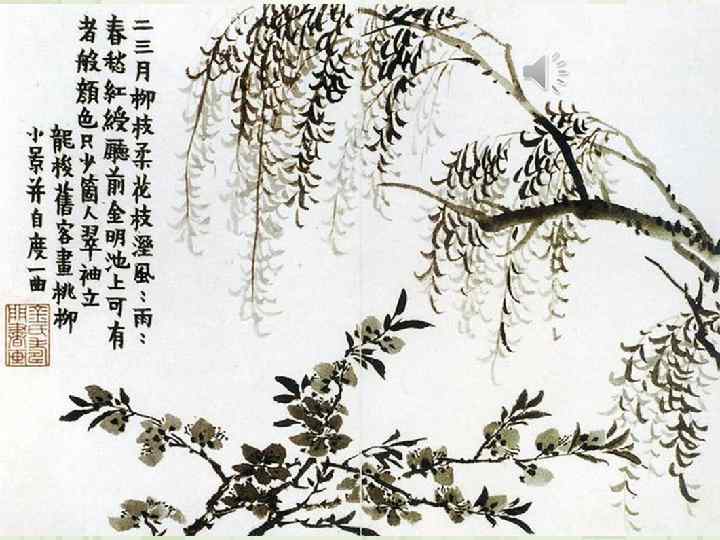 二三月柳枝柔花枝溼風〻雨〻
春愁紅綬廳前金明池上可有
者般顏色只少箇人翠袖立
龍梭舊客畫桃柳
小景并自度一曲
金氏壽
門書畫